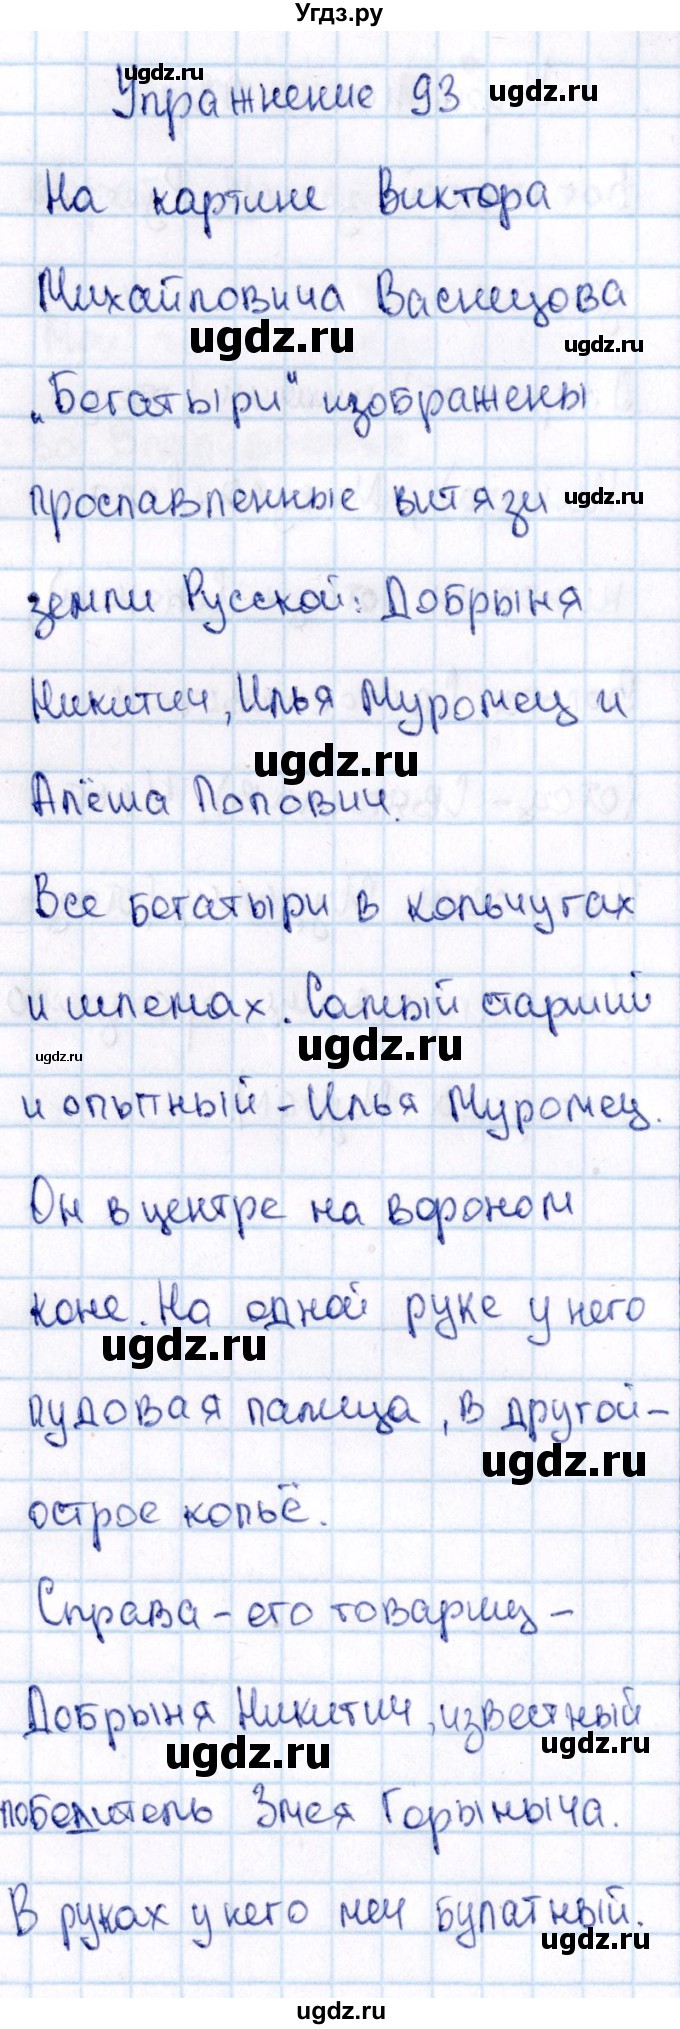 Угдз.ру
ugdz.ru
Упражнение 93 ugdz.ru
На картине Виктора
Михайловича Васнецова
ugdz.ru ugdz.ru
„Богатыри“ изображены
прославленные витязи ugdz.ru
земли Русской: Добрыня
Никитич, Илья Муромец и
ugdz.ru
Алёша Попович.
Все богатыри в кольчугах
и шлемах. Самый старший
ugdz.ru ugdz.ru
и опытный - Илья Муромец.
Он в центре на вороном
коне. На одной руке у него
ugdz.ru
пудовая палица, в другой-
ugdz.ru
острое копьё.
Справа - его товарищ -
Добрыня Никитич, известный
ugdz.ru ugdz.ru
победитель Змея Горыныча.
В руках у него меч булатный.
ugdz.ru
ugdz.ru